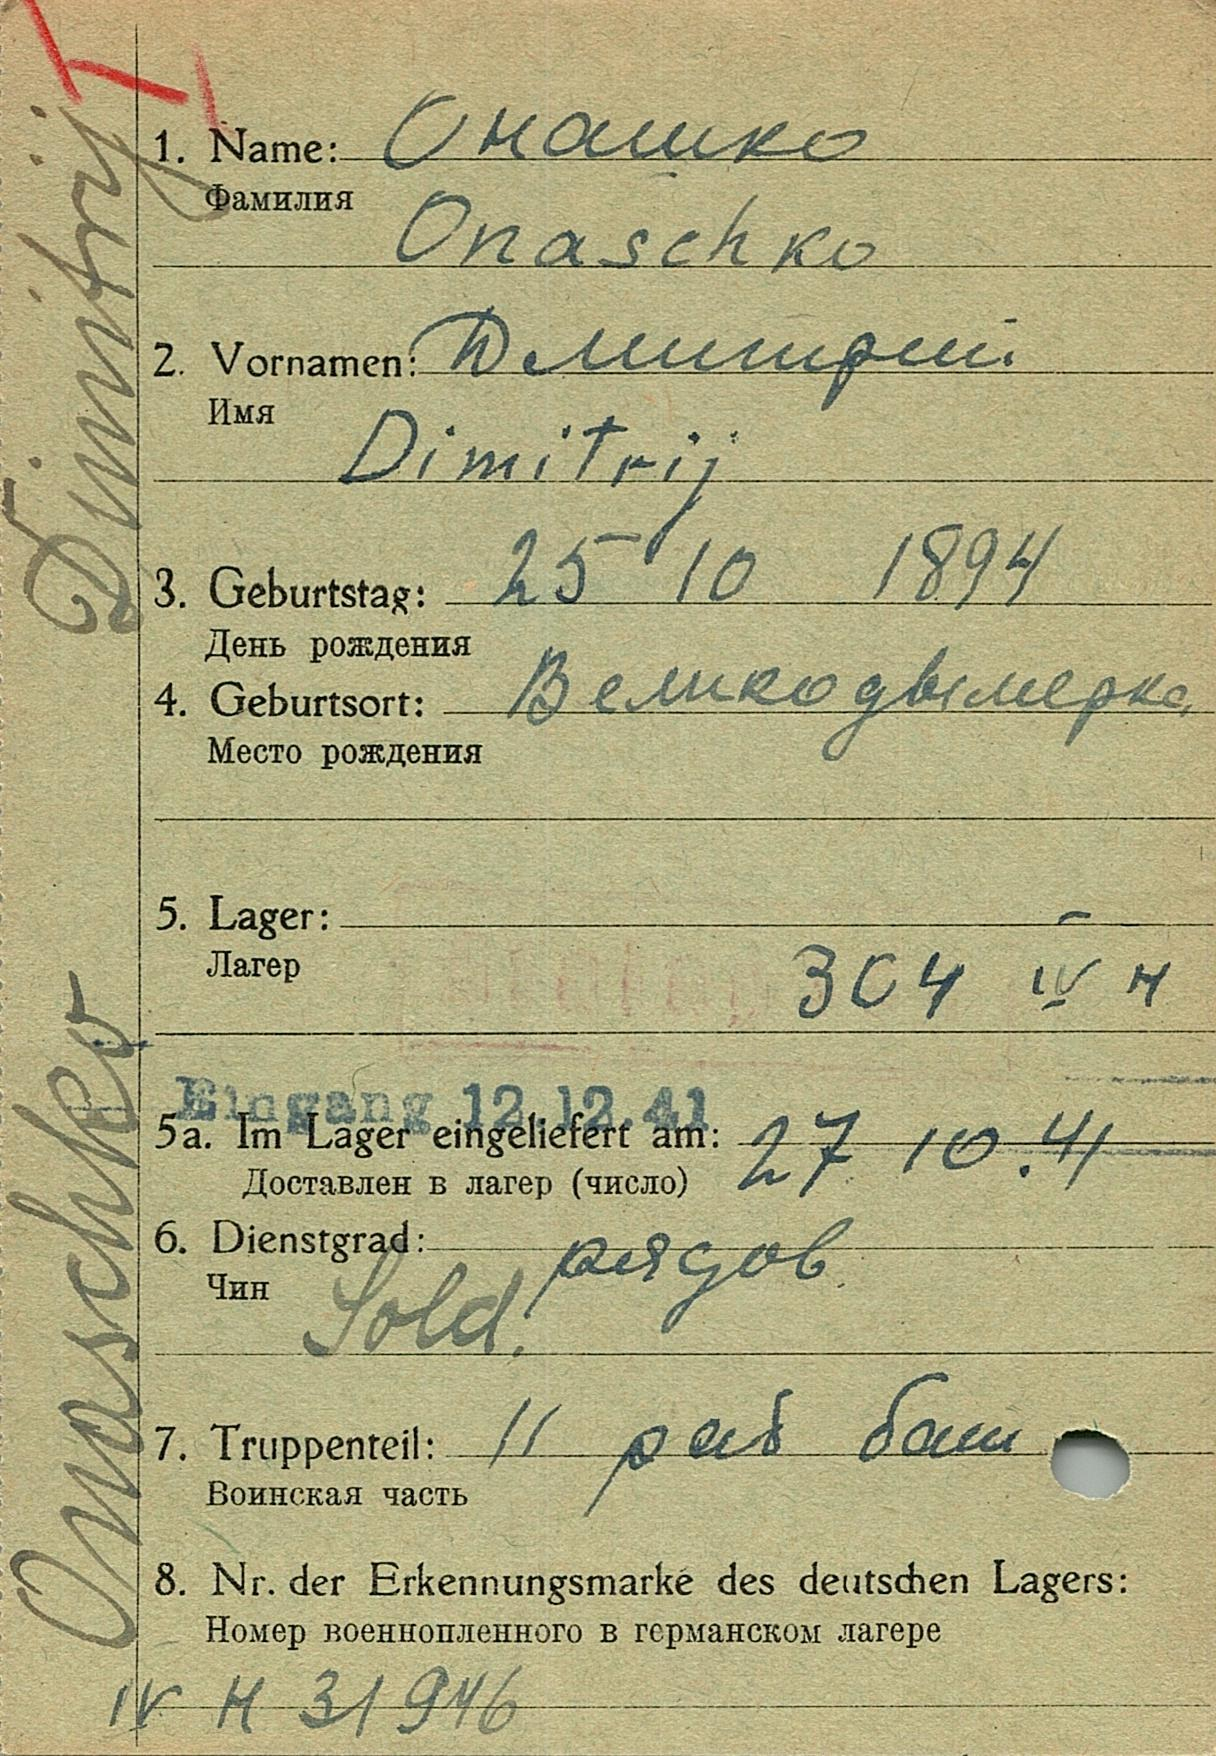 Dimitrij
Onaschko
1. Name: Онашко
Фамилия
Onaschko
2. Vornamen: Дмитрий
Имя
Dimitrij
3. Geburtstag: 25 10 1894
День рождения
4. Geburtsort: Великодымерка
Место рождения
5. Lager:
Лагер
304 IV H
Eingang 12.12.41
5a. Im Lager eingeliefert am: 27 10.41
Доставлен в лагер (число)
6. Dienstgrad: рядов.
Чин
Sold.
7. Truppenteil: 11 раб бат
Воинская часть
8. Nr. der Erkennungsmarke des deutschen Lagers:
Номер военнопленного в германском лагере
IV H 31946